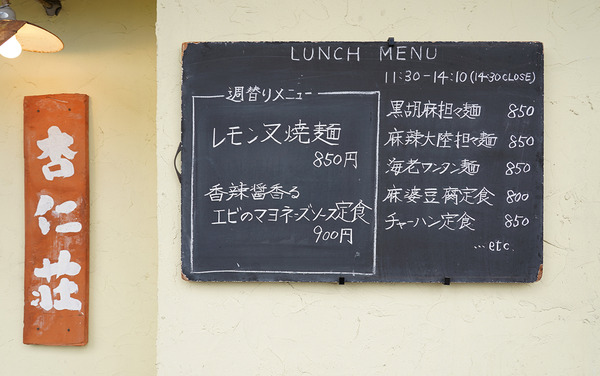 杏仁荘
LUNCH MENU
11:30-14:10(14:30CLOSE)
週替りメニュー
レモン叉焼麺
850円
香辣醤香る
エビのマヨネーズソース定食
900円
黒胡麻担々麺 850
麻辣大陸担々麺 850
海老ワンタン麺 850
麻婆豆腐定食 800
チャーハン定食 850
...etc.